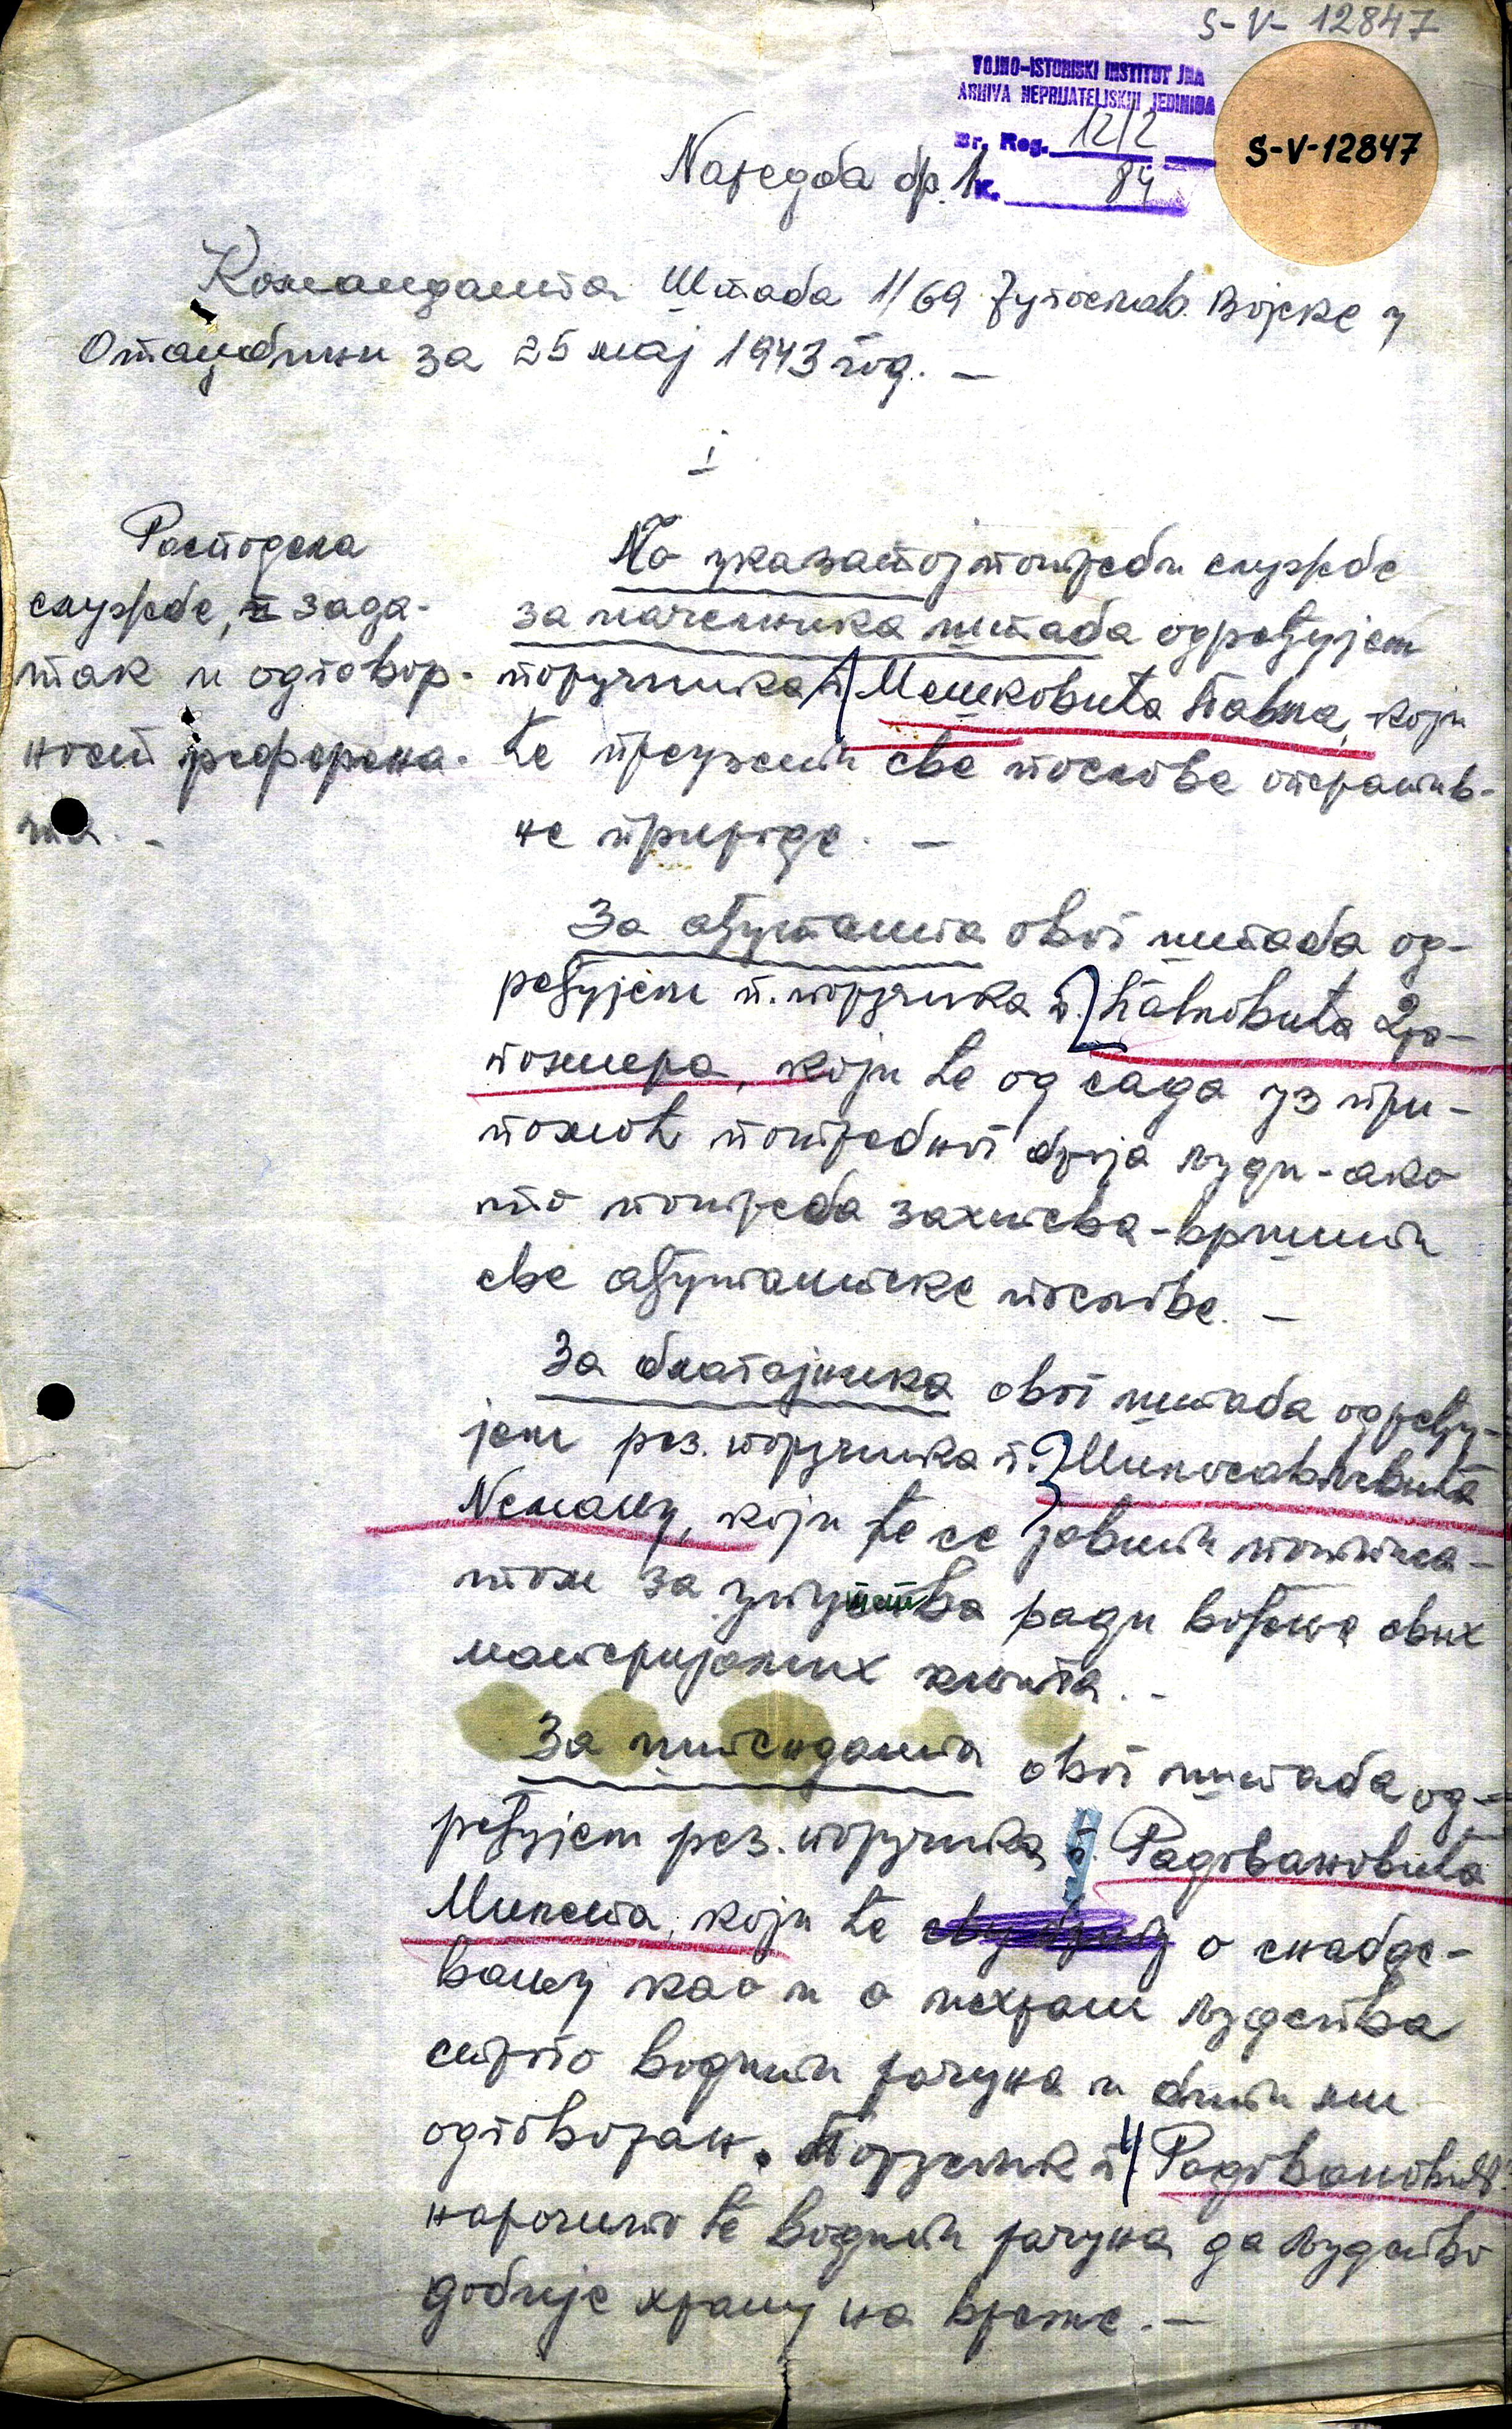 S-V-12847
VOJNO-ISTORISKI INSTITUT JNA
ARHIVA NEPRIJATELJSKIH JEDINICA
Br. Reg. 12/2
K. 84
S-V-12847
Наредба бр. 1
Команданта Штаба 1/69 Југослав. Војске у
Отаџбини за 25 мај 1943 год. —
I
Расподела
службе, задa-
так и одговор-
ност рефорена-
та. -
По указатој потреби службе
за начелника штаба одређујем
поручника г. 1 Мешковића Павла, који
ће преузети све послове оператив-
не природе. —
За ађутанта овог штаба од-
ређујем п. поручника г. 2 Павловића Дра-
гомира, који ће од сада уз при-
помоћ потребног броја људи-ако
то потреба захтева-вршити
све ађутантске послове. —
За благајника овог штаба одређу-
јем рез. поручника г. 3 Милосављевића
Немању, који ће се јавити потпи-
том за упуства ради вођење свих
материјалних књига. -
За интенданта овог штаба од-
ређујем рез. поручника г. Радовановића
Милета, који ће о снабде-
вању као и о исхрани људства
строго водити рачуна и бити ми
одговоран. Поручник г. 4 Радовановић
нарочито ће водити рачуна да људство
добије храну на време. —